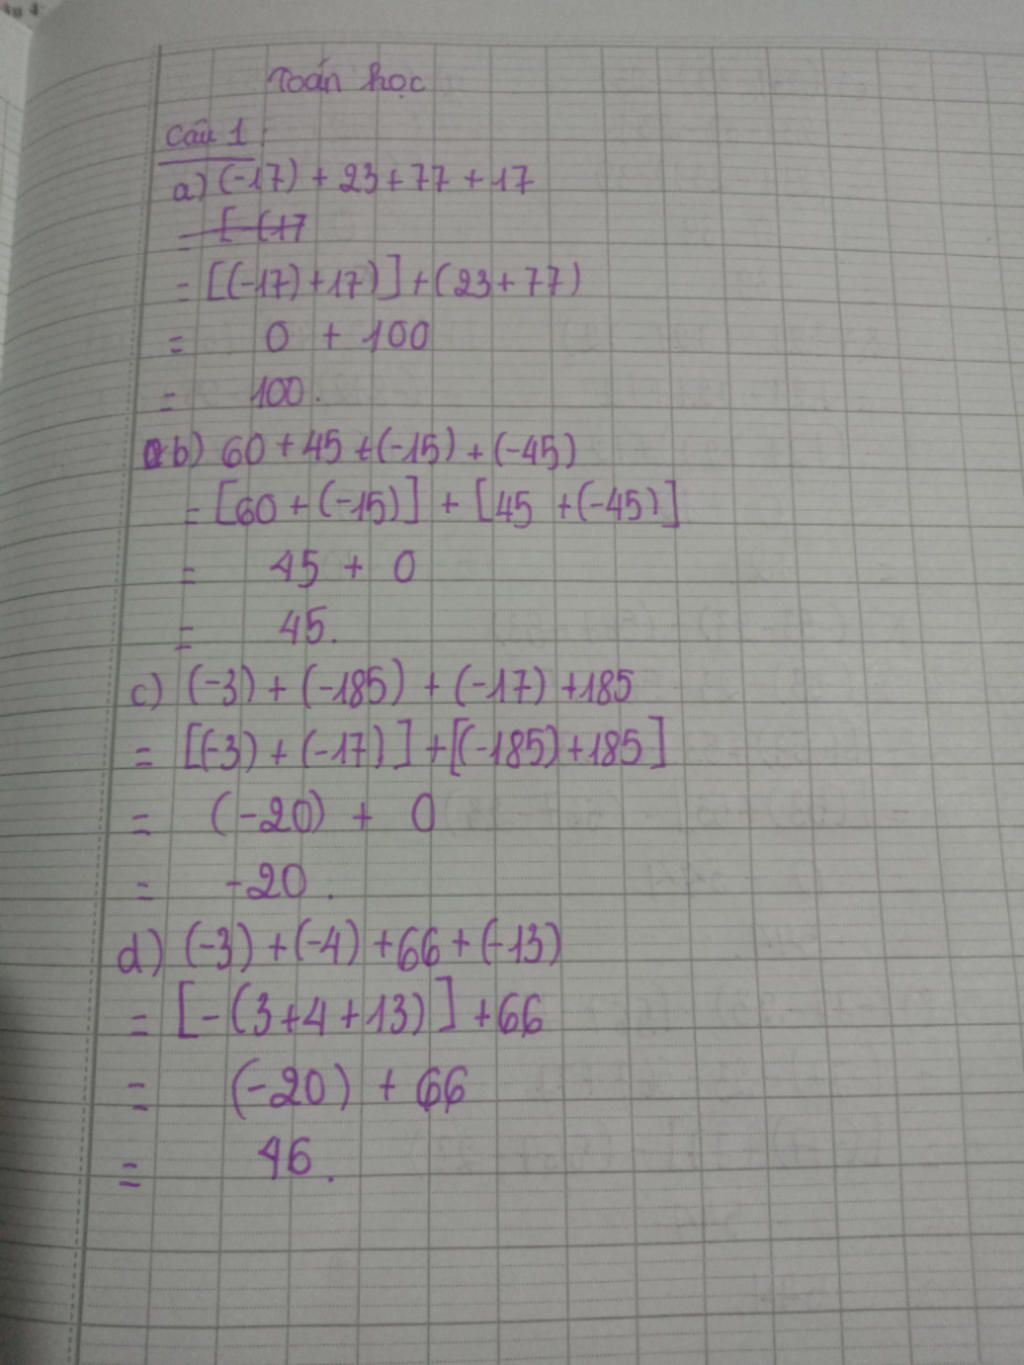 Toán học
Câu 1:
a) (-17) + 23 + 77 + 17
= [ (+7
= [(-17) + 17)] + (23 + 77)
= 0 + 100
= 100.
b) 60 + 45 + (-15) + (-45)
= [60 + (-15)] + [45 + (-45)]
= 45 + 0
= 45.
c) (-3) + (-185) + (-17) + 185
= [(-3) + (-17)] + [(-185) + 185]
= (-20) + 0
= -20.
d) (-3) + (-4) + 66 + (-13)
= [-(3 + 4 + 13)] + 66
= (-20) + 66
= 46.